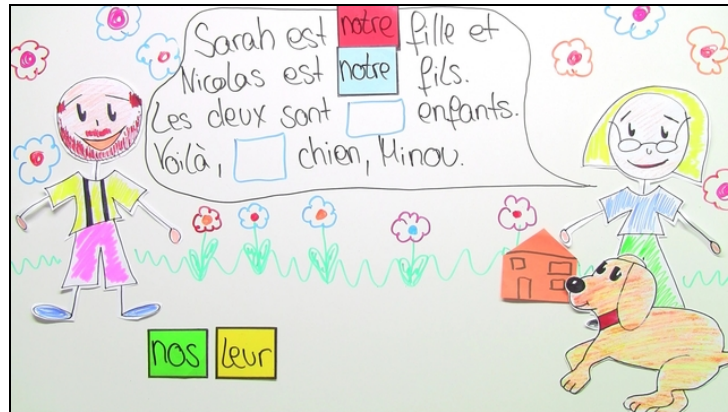 Sarah est notre fille et
Nicolas est notre fils.
Les deux sont enfants.
Voilà, chien, Minou.
nos leur